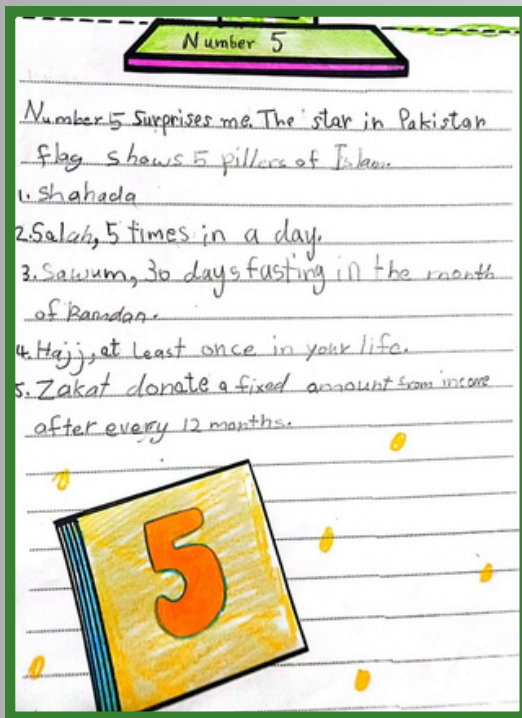 Number 5
Number 5 Surprises me. The star in Pakistan
flag shows 5 pillers of Islam.
1. Shahada
2. Salah, 5 times in a day.
3. Sawum, 30 days fasting in the month
of Ramdan.
4. Hajj, at least once in your life.
5. Zakat donate a fixed amount from income
after every 12 months.
5